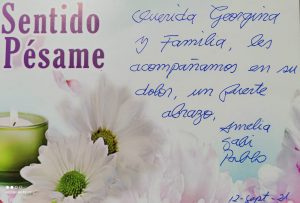 Sentido
Pésame
Querida Georgina
y Familia, les
acompañamos en su
dolor, un fuerte
abrazo,
Amelia
Gabi
Pablo
12-sept-21